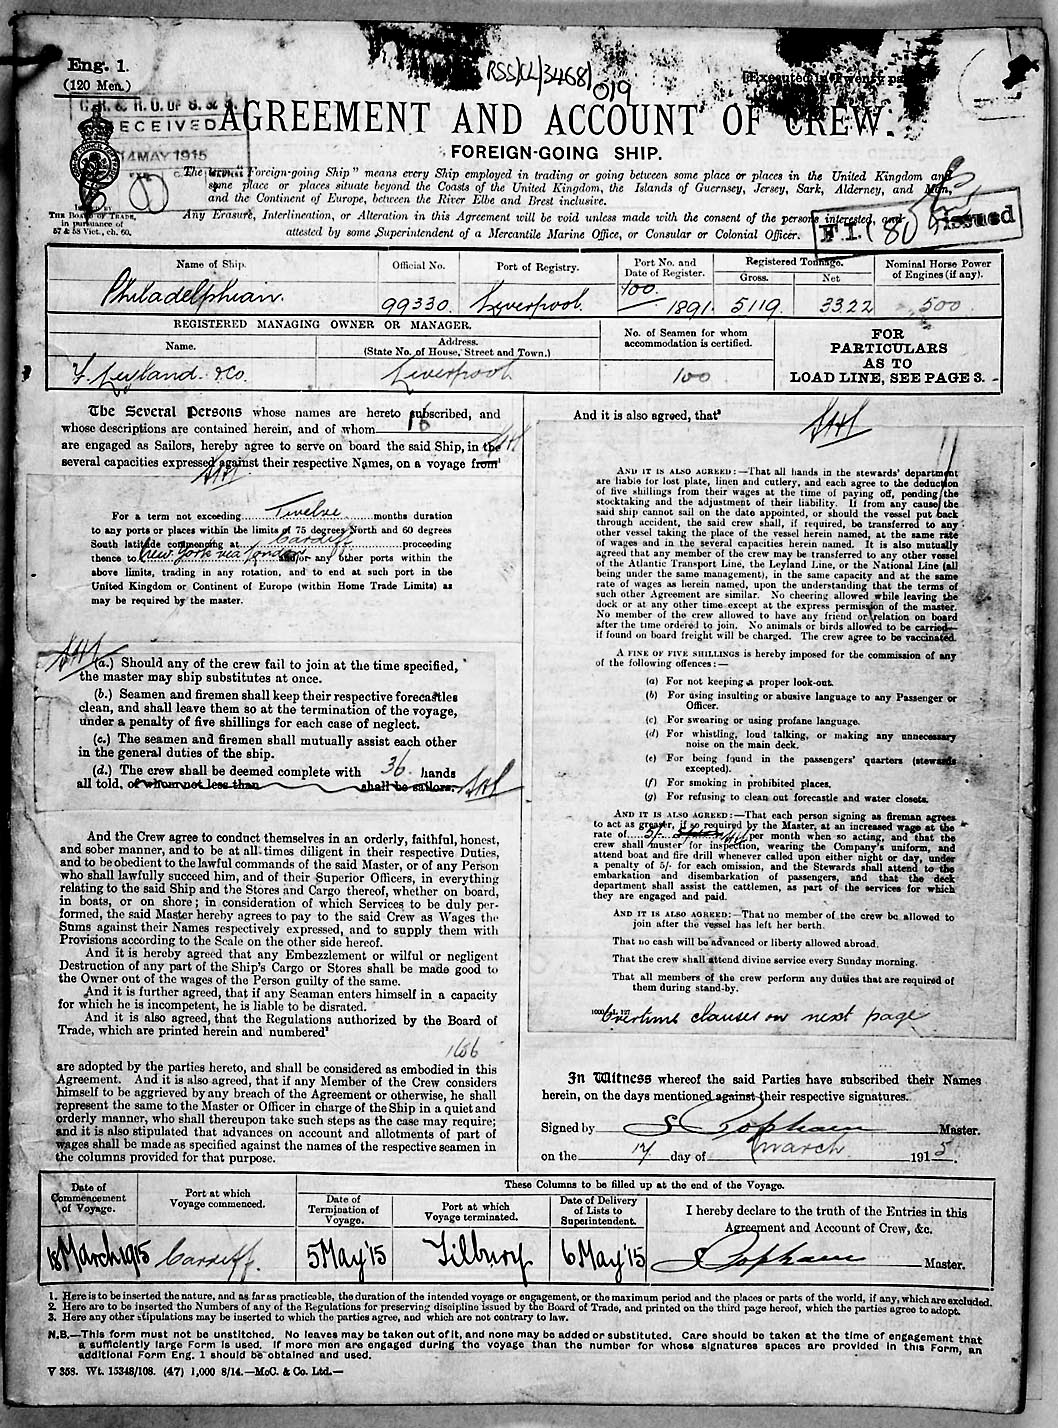 Eng. 1.
(120 Men.)
RSS/CL/3468/
019
[Executed in Twenty pa
RECEIVED
14 MAY 1915
AGREEMENT AND ACCOUNT OF CREW.
FOREIGN-GOING SHIP.
The term "Foreign-going Ship" means every Ship employed in trading or going between some place or places in the United Kingdom and
some place or places situate beyond the Coasts of the United Kingdom, the Islands of Guernsey, Jersey, Sark, Alderney, and Man,
and the Continent of Europe, between the River Elbe and Brest inclusive.
ISSUED BY
THE BOARD OF TRADE,
in pursuance of
57 & 58 Vict., ch. 60.
Any Erasure, Interlineation, or Alteration in this Agreement will be void unless made with the consent of the persons interested, and
attested by some Superintendent of a Mercantile Marine Office, or Consular or Colonial Officer.
F.I. 180 issued
Name of Ship. Official No. Port of Registry. Port No. and Date of Register. Registered Tonnage. Gross. Net Nominal Horse Power of Engines (if any).
Philadelphian. 99330. Liverpool. 100. 1891. 5119. 3322 500
REGISTERED MANAGING OWNER OR MANAGER.
Name. Address. (State No. of House, Street and Town.)
No. of Seamen for whom accommodation is certified.
FOR
PARTICULARS
AS TO
LOAD LINE, SEE PAGE 3.
F. Leyland & Co. Liverpool 100
The Several Persons whose names are hereto subscribed, and
whose descriptions are contained herein, and of whom 16
are engaged as Sailors, hereby agree to serve on board the said Ship, in the
several capacities expressed against their respective Names, on a voyage from
For a term not exceeding Twelve months duration
to any ports or places within the limits of 75 degrees North and 60 degrees
South latitude commencing at Cardiff proceeding
thence to New York via London and/or any other ports within the
above limits, trading in any rotation, and to end at such port in the
United Kingdom or Continent of Europe (within Home Trade Limits) as
may be required by the master.
(a.) Should any of the crew fail to join at the time specified,
the master may ship substitutes at once.
(b.) Seamen and firemen shall keep their respective forecastles
clean, and shall leave them so at the termination of the voyage,
under a penalty of five shillings for each case of neglect.
(c.) The seamen and firemen shall mutually assist each other
in the general duties of the ship.
(d.) The crew shall be deemed complete with 36 hands
all told, of whom not less than shall be sailors.
And the Crew agree to conduct themselves in an orderly, faithful, honest,
and sober manner, and to be at all times diligent in their respective Duties,
and to be obedient to the lawful commands of the said Master, or of any Person
who shall lawfully succeed him, and of their Superior Officers, in everything
relating to the said Ship and the Stores and Cargo thereof, whether on board,
in boats, or on shore; in consideration of which Services to be duly per-
formed, the said Master hereby agrees to pay to the said Crew as Wages the
Sums against their Names respectively expressed, and to supply them with
Provisions according to the Scale on the other side hereof.
And it is hereby agreed that any Embezzlement or wilful or negligent
Destruction of any part of the Ship's Cargo or Stores shall be made good to
the Owner out of the wages of the Person guilty of the same.
And it is further agreed, that if any Seaman enters himself in a capacity
for which he is incompetent, he is liable to be disrated.
And it is also agreed, that the Regulations authorized by the Board of
Trade, which are printed herein and numbered²
1 to 6
are adopted by the parties hereto, and shall be considered as embodied in this
Agreement. And it is also agreed, that if any Member of the Crew considers
himself to be aggrieved by any breach of the Agreement or otherwise, he shall
represent the same to the Master or Officer in charge of the Ship in a quiet and
orderly manner, who shall thereupon take such steps as the case may require;
and it is also stipulated that advances on account and allotments of part of
wages shall be made as specified against the names of the respective seamen in
the columns provided for that purpose.
And it is also agreed, that³
AND IT IS ALSO AGREED:—That all hands in the stewards' department
are liable for lost plate, linen and cutlery, and each agree to the deduction
of five shillings from their wages at the time of paying off, pending the
stocktaking and the adjustment of their liability. If from any cause the
said ship cannot sail on the date appointed, or should the vessel put back
through accident, the said crew shall, if required, be transferred to any
other vessel taking the place of the vessel herein named, at the same rate
of wages and in the several capacities herein named. It is also mutually
agreed that any member of the crew may be transferred to any other vessel
of the Atlantic Transport Line, the Leyland Line, or the National Line (all
being under the same management), in the same capacity and at the same
rate of wages as herein named, upon the understanding that the terms of
such other Agreement are similar. No cheering allowed while leaving the
dock or at any other time except at the express permission of the master.
No member of the crew allowed to have any friend or relation on board
after the time ordered to join. No animals or birds allowed to be carried—
if found on board freight will be charged. The crew agree to be vaccinated.
A FINE OF FIVE SHILLINGS is hereby imposed for the commission of any
of the following offences:—
(a) For not keeping a proper look-out.
(b) For using insulting or abusive language to any Passenger or
Officer.
(c) For swearing or using profane language.
(d) For whistling, loud talking, or making any unnecessary
noise on the main deck.
(e) For being found in the passengers' quarters (stewards
excepted).
(f) For smoking in prohibited places.
(g) For refusing to clean out forecastle and water closets.
AND IT IS ALSO AGREED:—That each person signing as fireman agrees
to act as greaser, if so required by the Master, at an increased wage at the
rate of 5/- per month when so acting, and that the
crew shall muster for inspection, wearing the Company's uniform, and
attend boat and fire drill whenever called upon either night or day, under
a penalty of 5/- for each omission, and the Stewards shall attend to the
embarkation and disembarkation of passengers, and that the deck
department shall assist the cattlemen, as part of the services for which
they are engaged and paid.
AND IT IS ALSO AGREED:—That no member of the crew be allowed to
join after the vessel has left her berth.
That no cash will be advanced or liberty allowed abroad.
That the crew shall attend divine service every Sunday morning.
That all members of the crew perform any duties that are required of
them during stand-by.
Overtime clauses on next page
In Witness whereof the said Parties have subscribed their Names
herein, on the days mentioned against their respective signatures.
Signed by S Popham Master.
on the 17 day of March 1915.
Date of Commencement of Voyage. Port at which Voyage commenced. These Columns to be filled up at the end of the Voyage.
Date of Termination of Voyage. Port at which Voyage terminated. Date of Delivery of Lists to Superintendent. I hereby declare to the truth of the Entries in this Agreement and Account of Crew, &c.
18 March 1915 Cardiff. 5 May '15 Tilbury 6 May '15 S Popham Master.
1. Here is to be inserted the nature, and as far as practicable, the duration of the intended voyage or engagement, or the maximum period and the places or parts of the world, if any, which are excluded.
2. Here are to be inserted the Numbers of any of the Regulations for preserving discipline issued by the Board of Trade, and printed on the third page hereof, which the parties agree to adopt.
3. Here any other stipulations may be inserted to which the parties agree, and which are not contrary to law.
N.B.—This form must not be unstitched. No leaves may be taken out of it, and none may be added or substituted. Care should be taken at the time of engagement that
a sufficiently large Form is used. If more men are engaged during the voyage than the number for whose signatures spaces are provided in this Form, an
additional Form Eng. 1 should be obtained and used.
V 358. Wt. 15348/108. (47) 1,000 8/14.—McC. & Co. Ltd.—